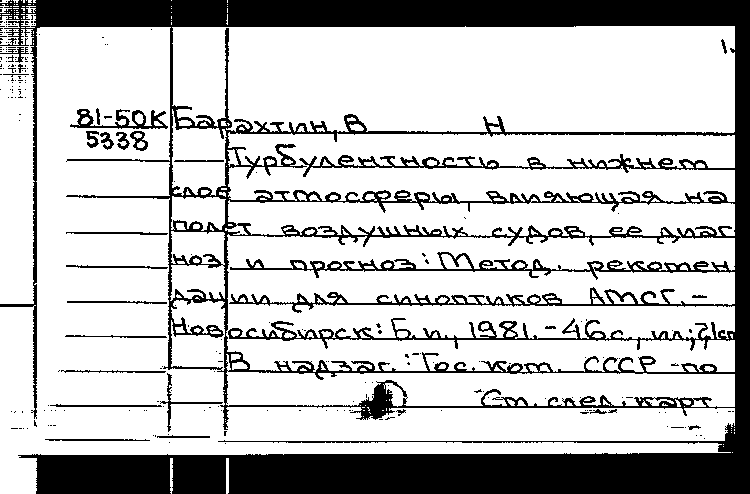 1.
81-50К Барахтин, В Н
5338
Турбулентность в нижнем
слое атмосферы, влияющая на
полет воздушных судов, ее диаг
ноз и прогноз: Метод. рекомен
дации для синоптиков АМСГ. -
Новосибирск: Б.и., 1981. - 46с., ил.; 21см
В надзаг.: Гос. ком. СССР по
См. след. карт